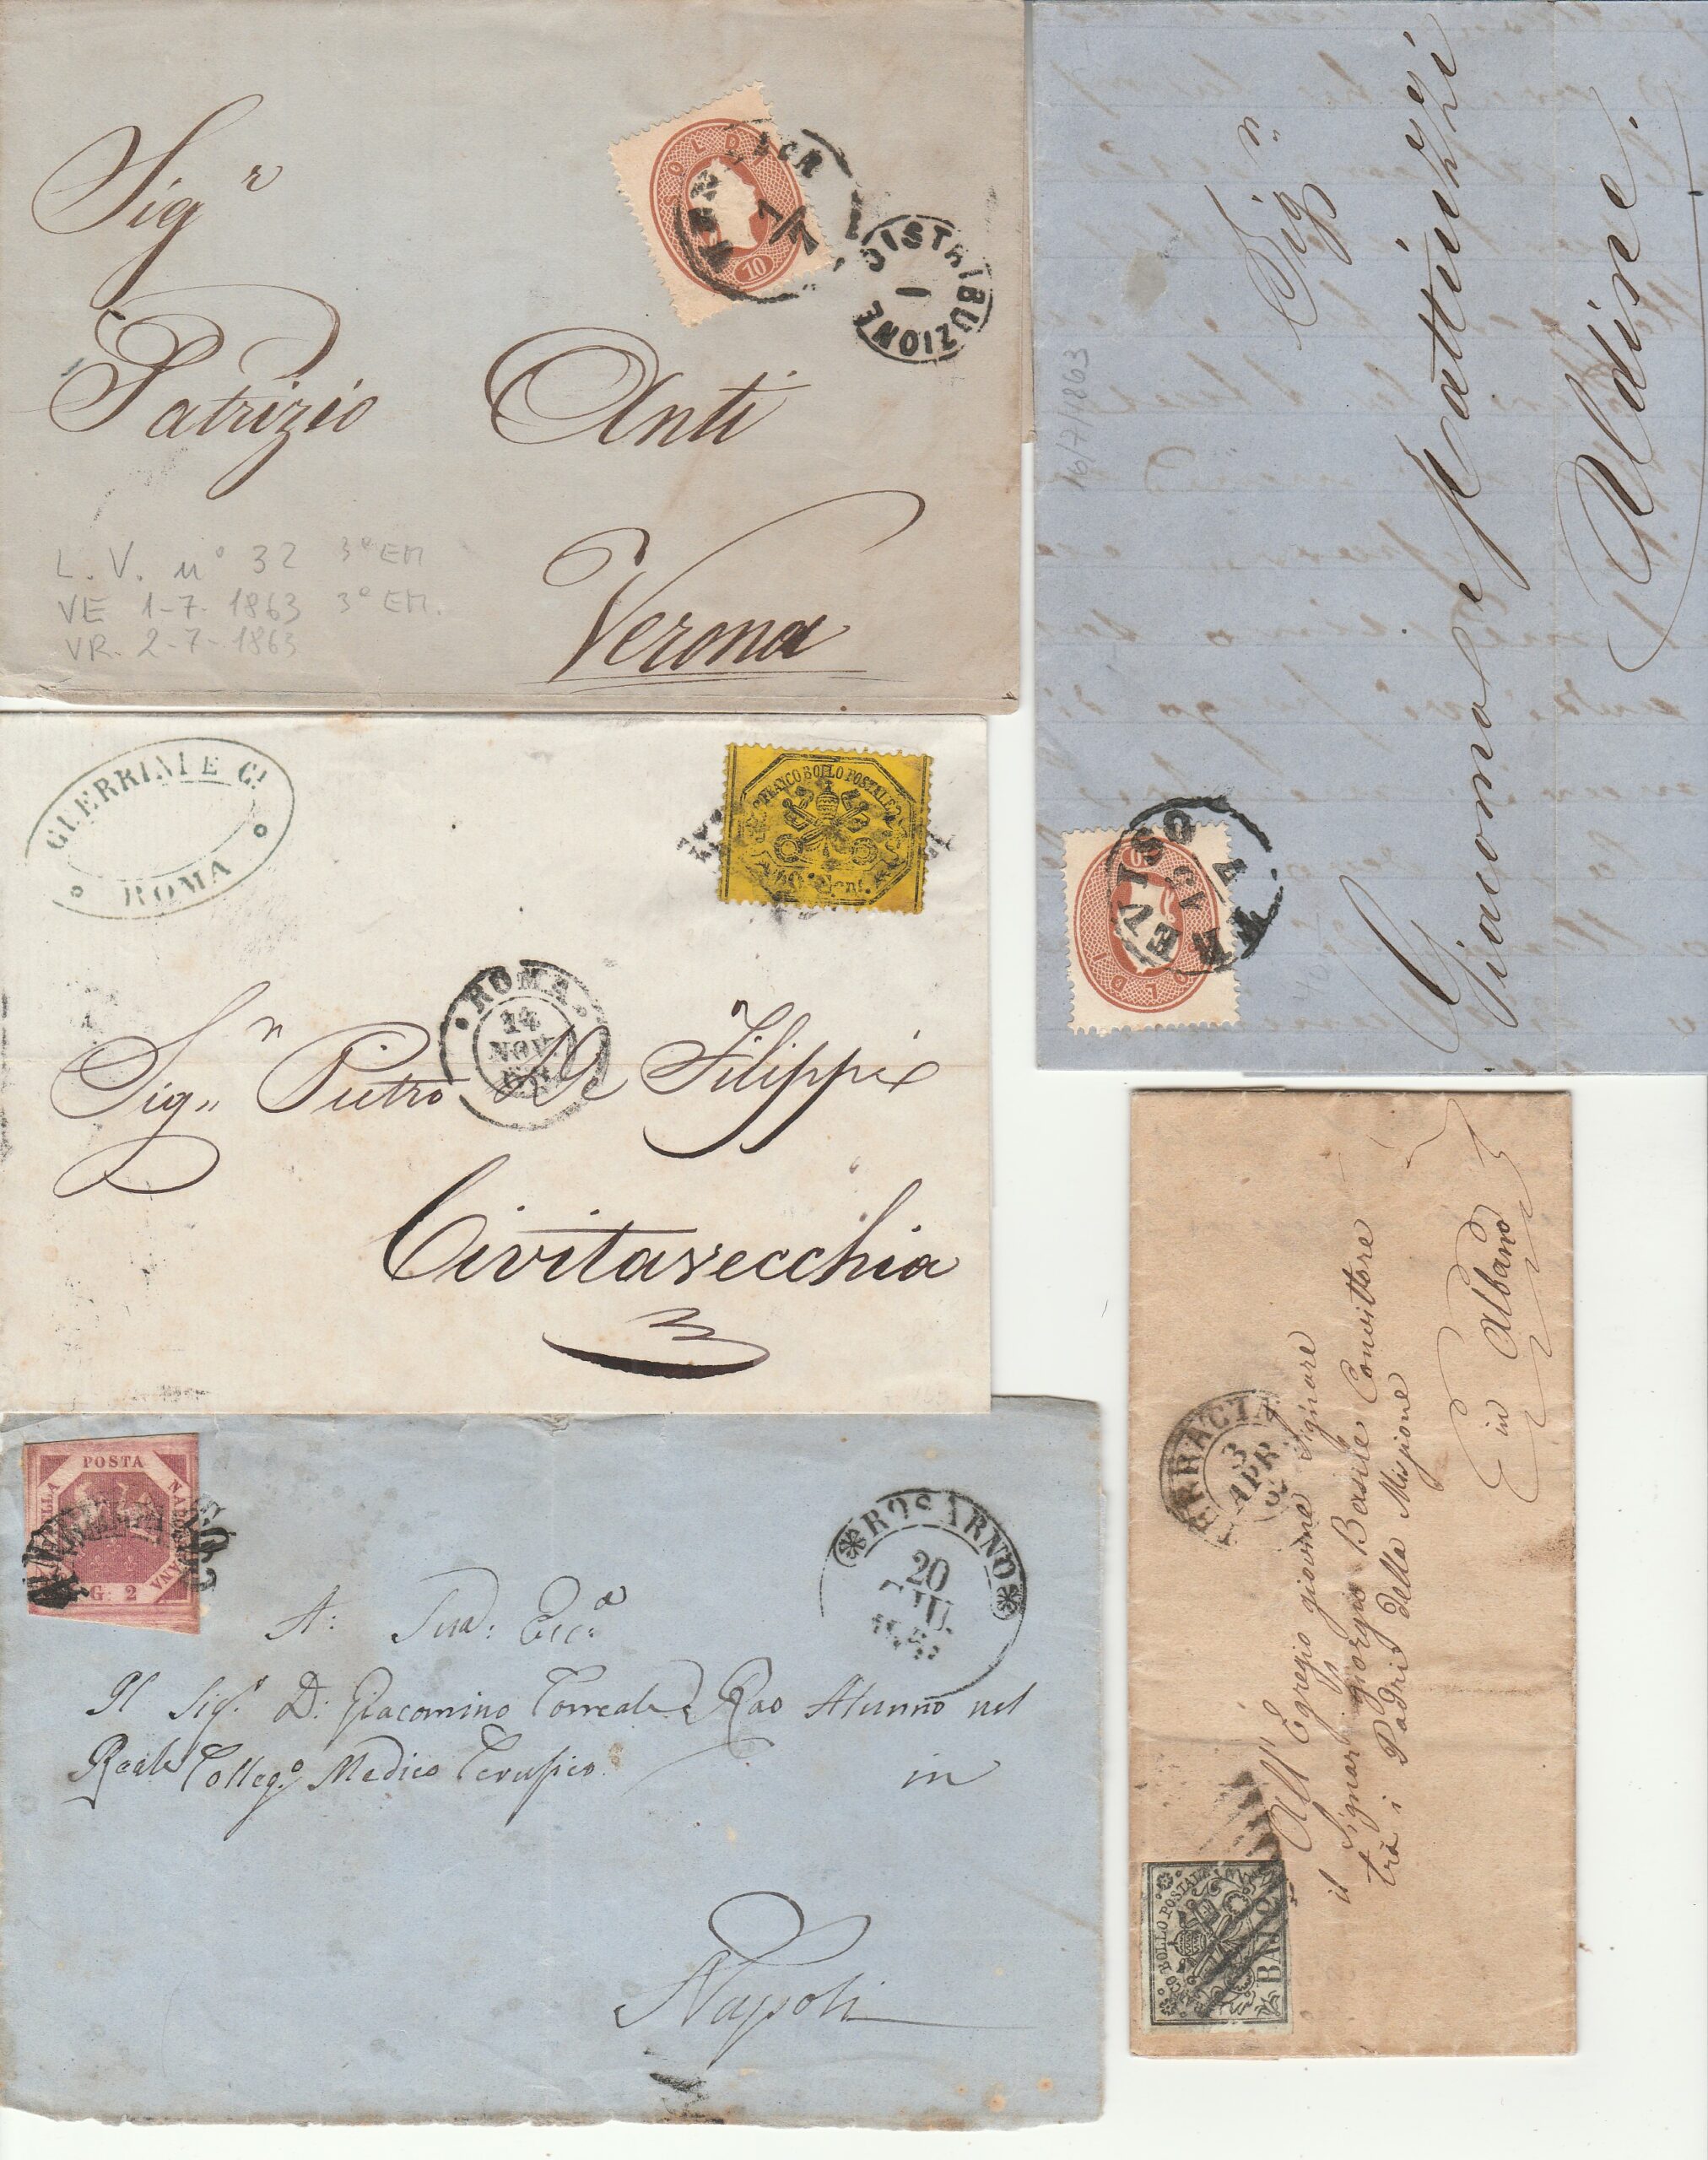 Sigr
Patrizio Anti
Verona
SOLDI
10
1/7
DISTRIBUZIONE
1
L. V. n° 32 3° EM
VE 1-7-1863 3° EM.
VR. 2-7-1863
Sign.
Giacomo e
Udine.
16/7/1863
SOLDI
10
TREVISO
GUERRINI E C!
ROMA
FRANCO BOLLO POSTALE
40 Cent.
ROMA
14
NOV.
Sign. Pietro De Filippi
Civitavecchia
POSTA
NAPOLETANA
G. 2
ANNULLATO
ROSARNO
20
A: Sua: Ecc:a
Il Sigr. D: Giacomino Rao Alunno nel
Reale Colleg.o Medico in
Napoli
3
APR
All' Egregio giovine Signore
il Signor giorgio Basile Convittore
trà i Padri della Missione
in Albano
BOLLO POSTALE
BAJ